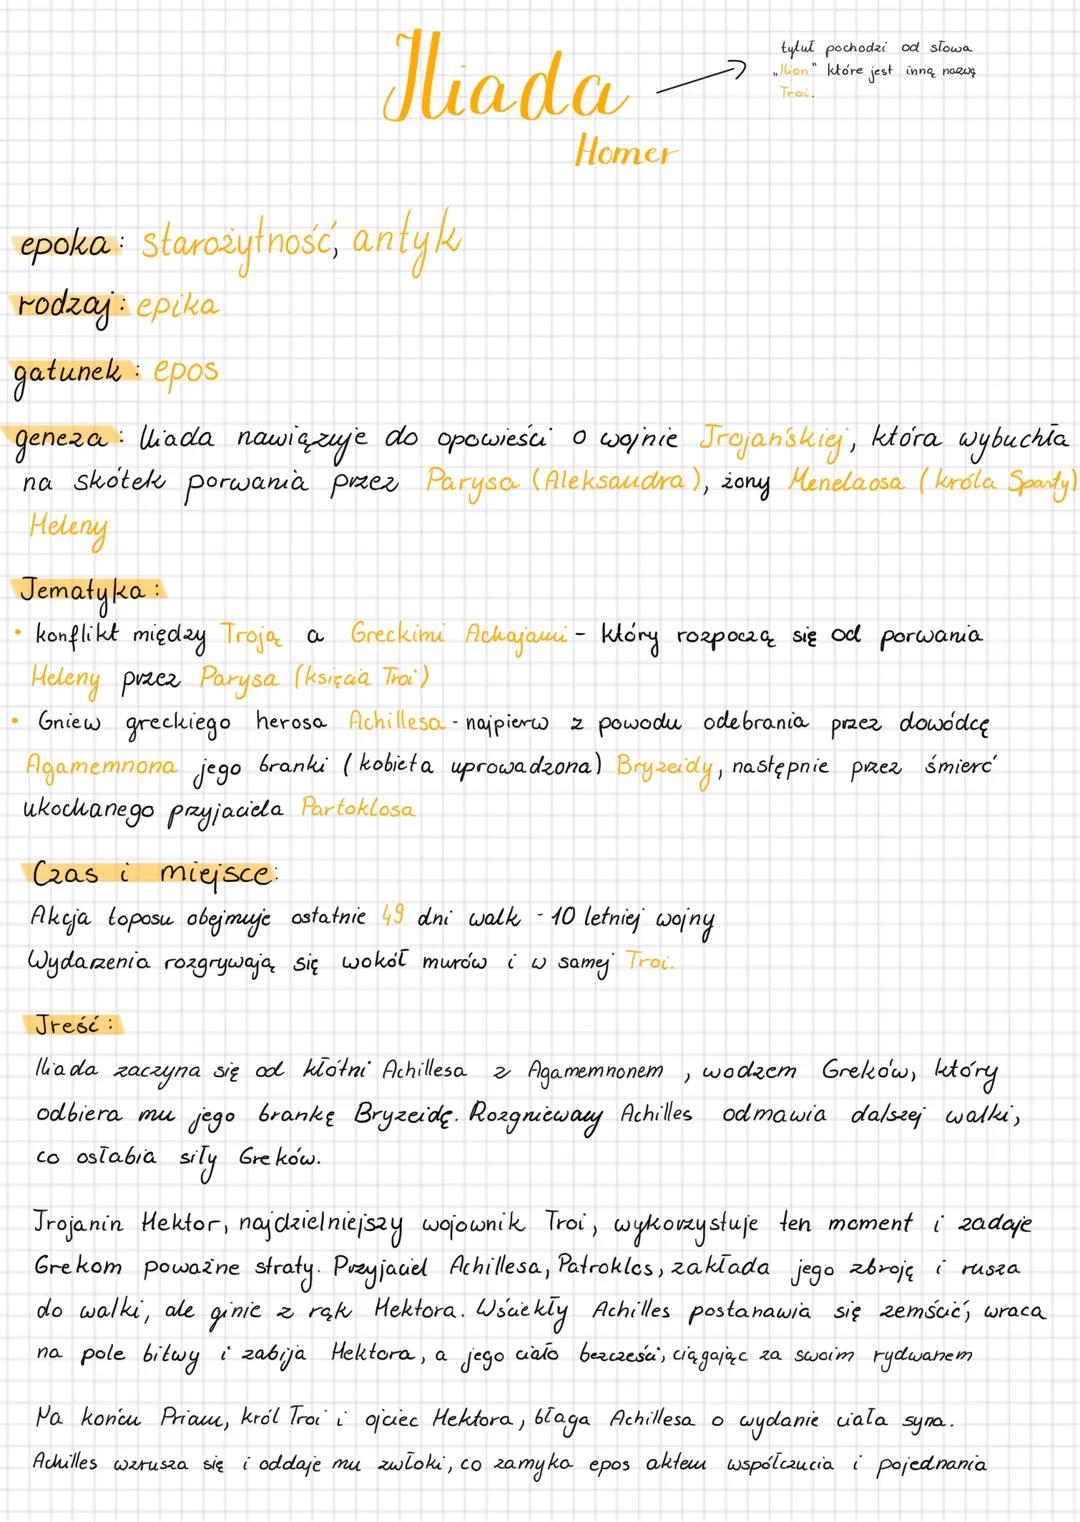 Iliada
tytuł pochodzi od słowa
„Ilion" które jest inną nazwą
Troi.
Homer
epoka: starożytność, antyk
rodzaj: epika
gatunek: epos
geneza: Iliada nawiązuje do opowieści o wojnie Trojańskiej, która wybuchła
na skótek porwania przez Parysa (Aleksandra), żony Menelaosa (króla Sparty)
Heleny
Tematyka:
• konflikt między Troją a Greckimi Achajami - który rozpoczą się od porwania
Heleny przez Parysa (księcia Troi)
• Gniew greckiego herosa Achillesa - najpierw z powodu odebrania przez dowódcę
Agamemnona jego branki (kobieta uprowadzona) Bryzeidy, następnie przez śmierć
ukochanego przyjaciela Partoklosa
Czas i miejsce:
Akcja toposu obejmuje ostatnie 49 dni walk - 10 letniej wojny
Wydarzenia rozgrywają się wokół murów i w samej Troi.
Treść:
Iliada zaczyna się od kłótni Achillesa z Agamemnonem, wodzem Greków, który
odbiera mu jego brankę Bryzeidę. Rozgniewany Achilles odmawia dalszej walki,
co osłabia siły Greków.
Trojanin Hektor, najdzielniejszy wojownik Troi, wykorzystuje ten moment i zadaje
Grekom poważne straty. Przyjaciel Achillesa, Patroklos, zakłada jego zbroję i rusza
do walki, ale ginie z rąk Hektora. Wściekły Achilles postanawia się zemścić, wraca
na pole bitwy i zabija Hektora, a jego ciało bezcześci, ciągając za swoim rydwanem
Na końcu Priam, król Troi i ojciec Hektora, błaga Achillesa o wydanie ciała syna.
Achilles wzrusza się i oddaje mu zwłoki, co zamyka epos aktem współczucia i pojednania